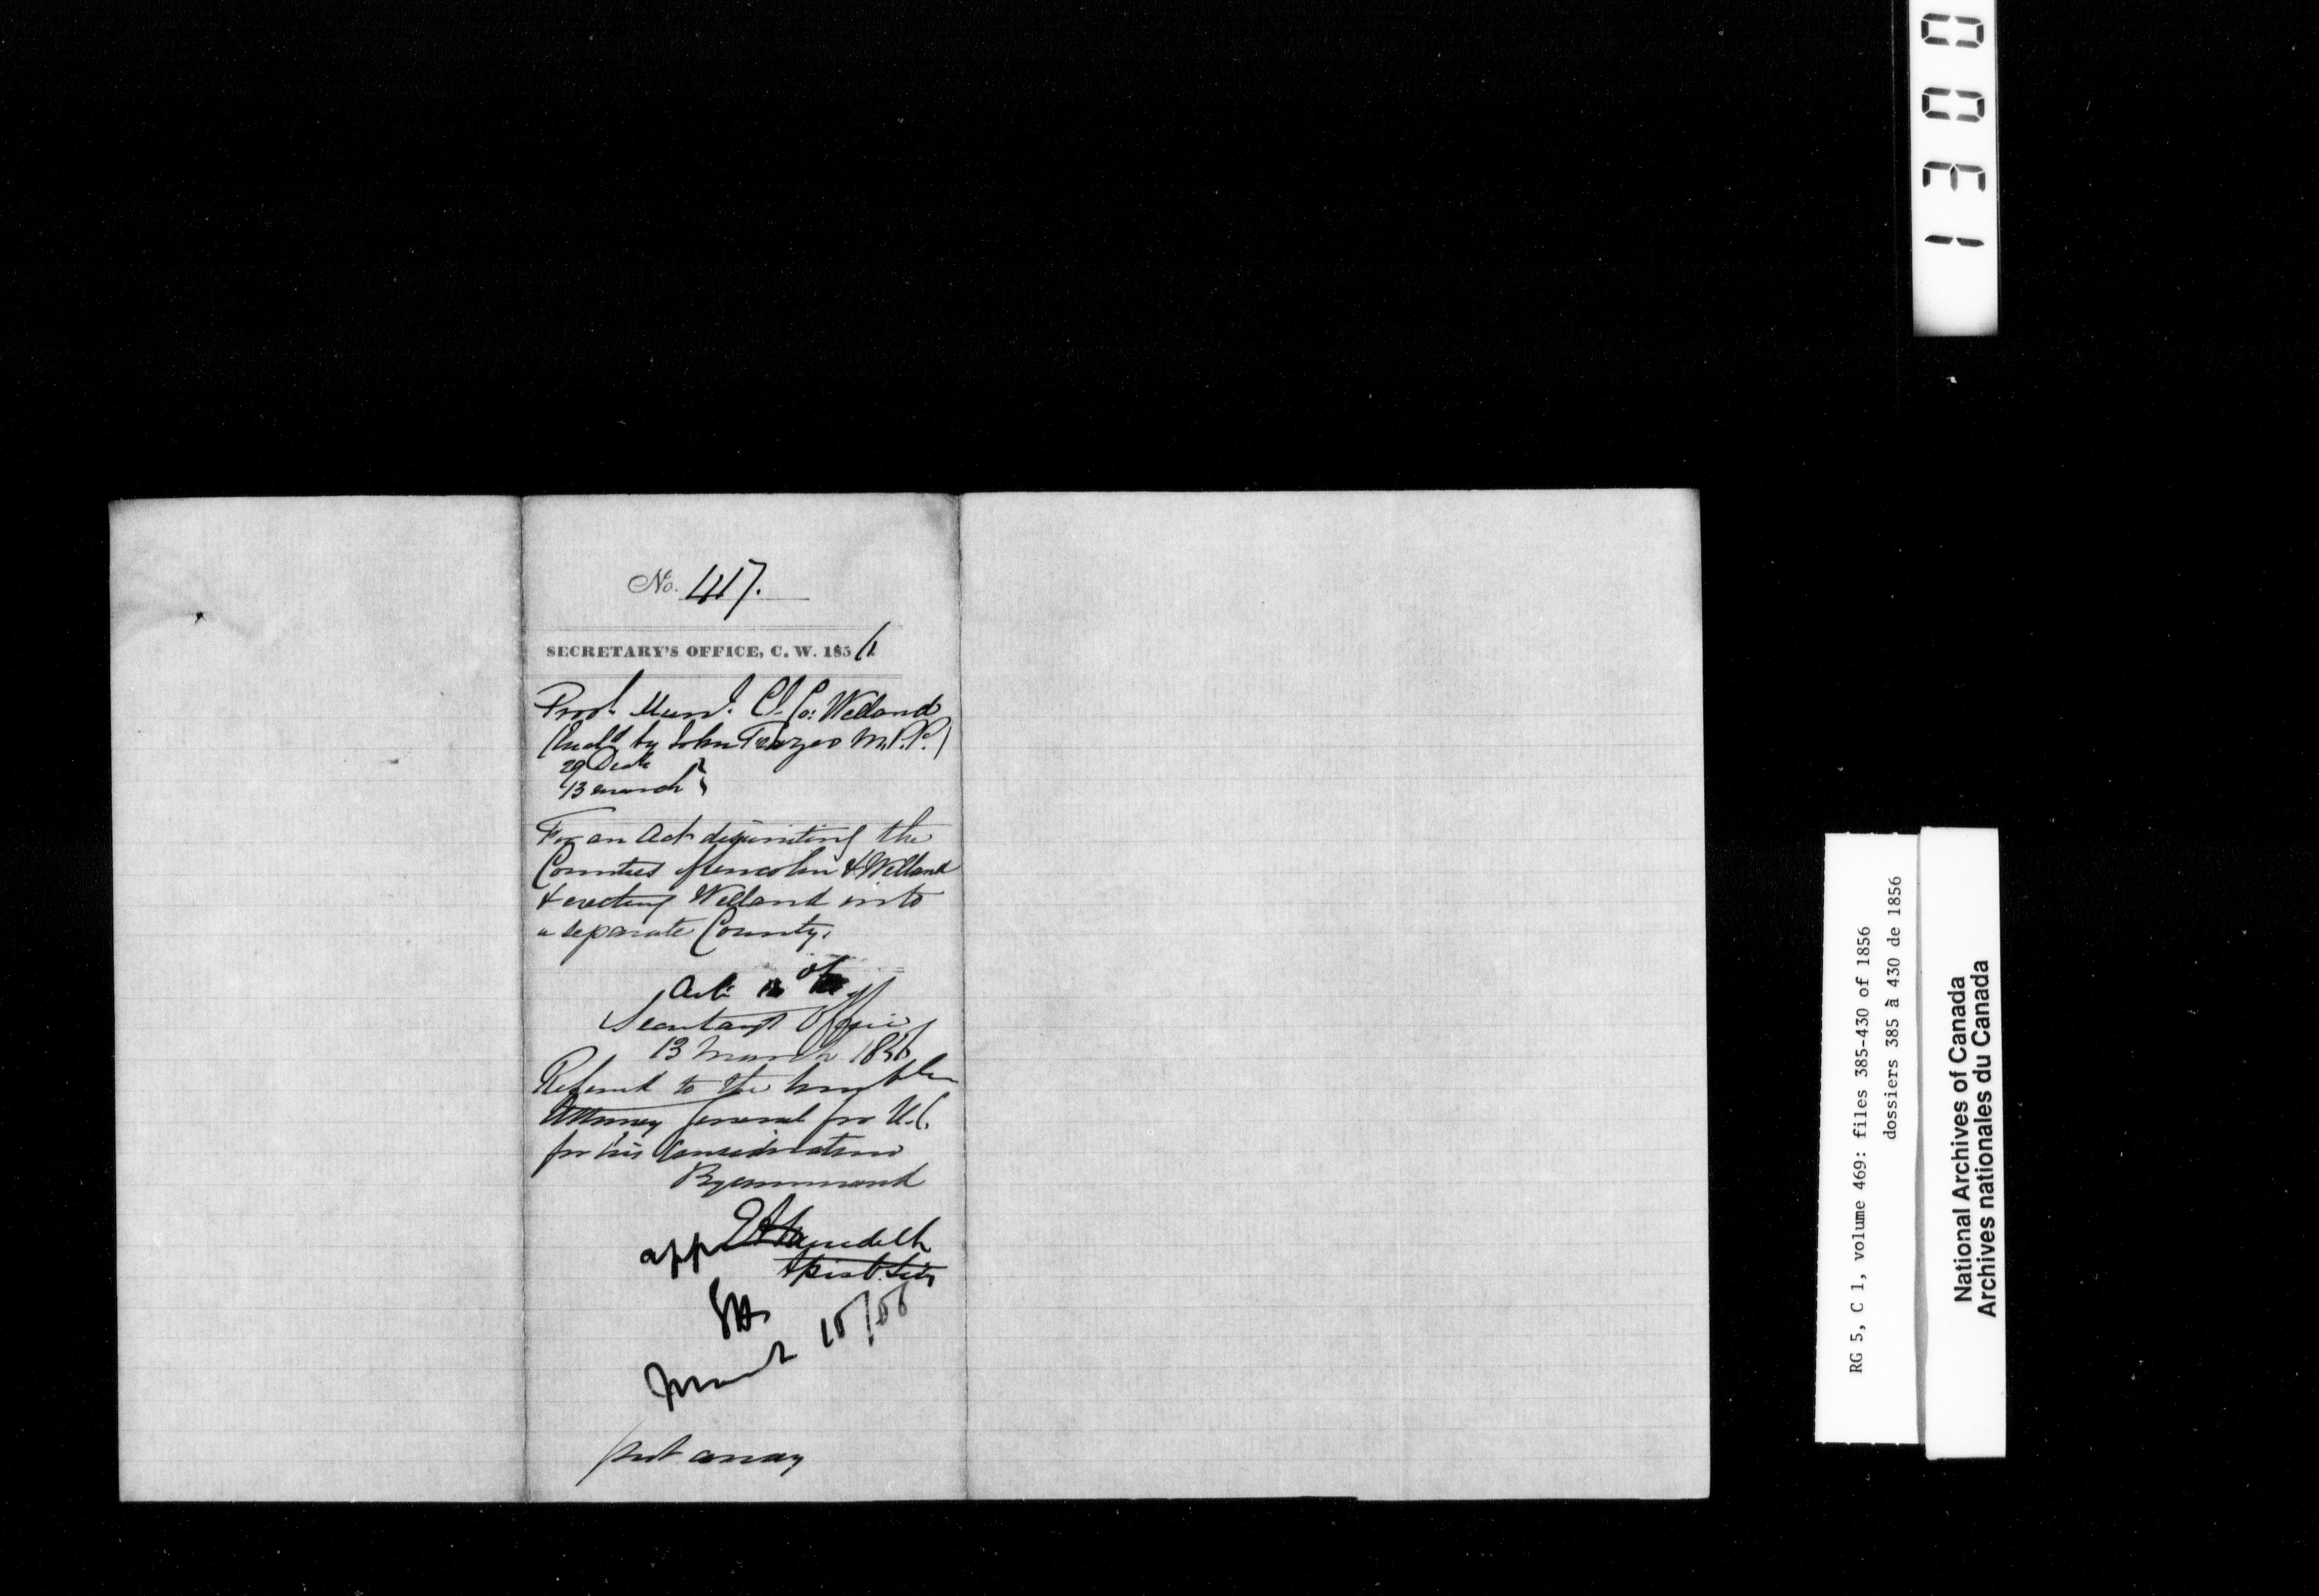 No. 417.
SECRETARY'S OFFICE, C. W. 1856
Provl. Munl. Cl. Co: Welland
(Encld by John Frazer M.P.P.)
29 Decr
13 March
For an Act disuniting the
Counties of Lincoln & Welland
& erecting Welland into
a separate County.
Secretary's Office
13 March 1856
Referred to the honorable
Attorney General for U.C.
for his consideration
By command
E A Meredith
Assist. Secy
March 15/56
put away
1300
RG 5, C 1, volume 469: files 385-430 of 1856
dossiers 385 à 430 de 1856
National Archives of Canada
Archives nationales du Canada